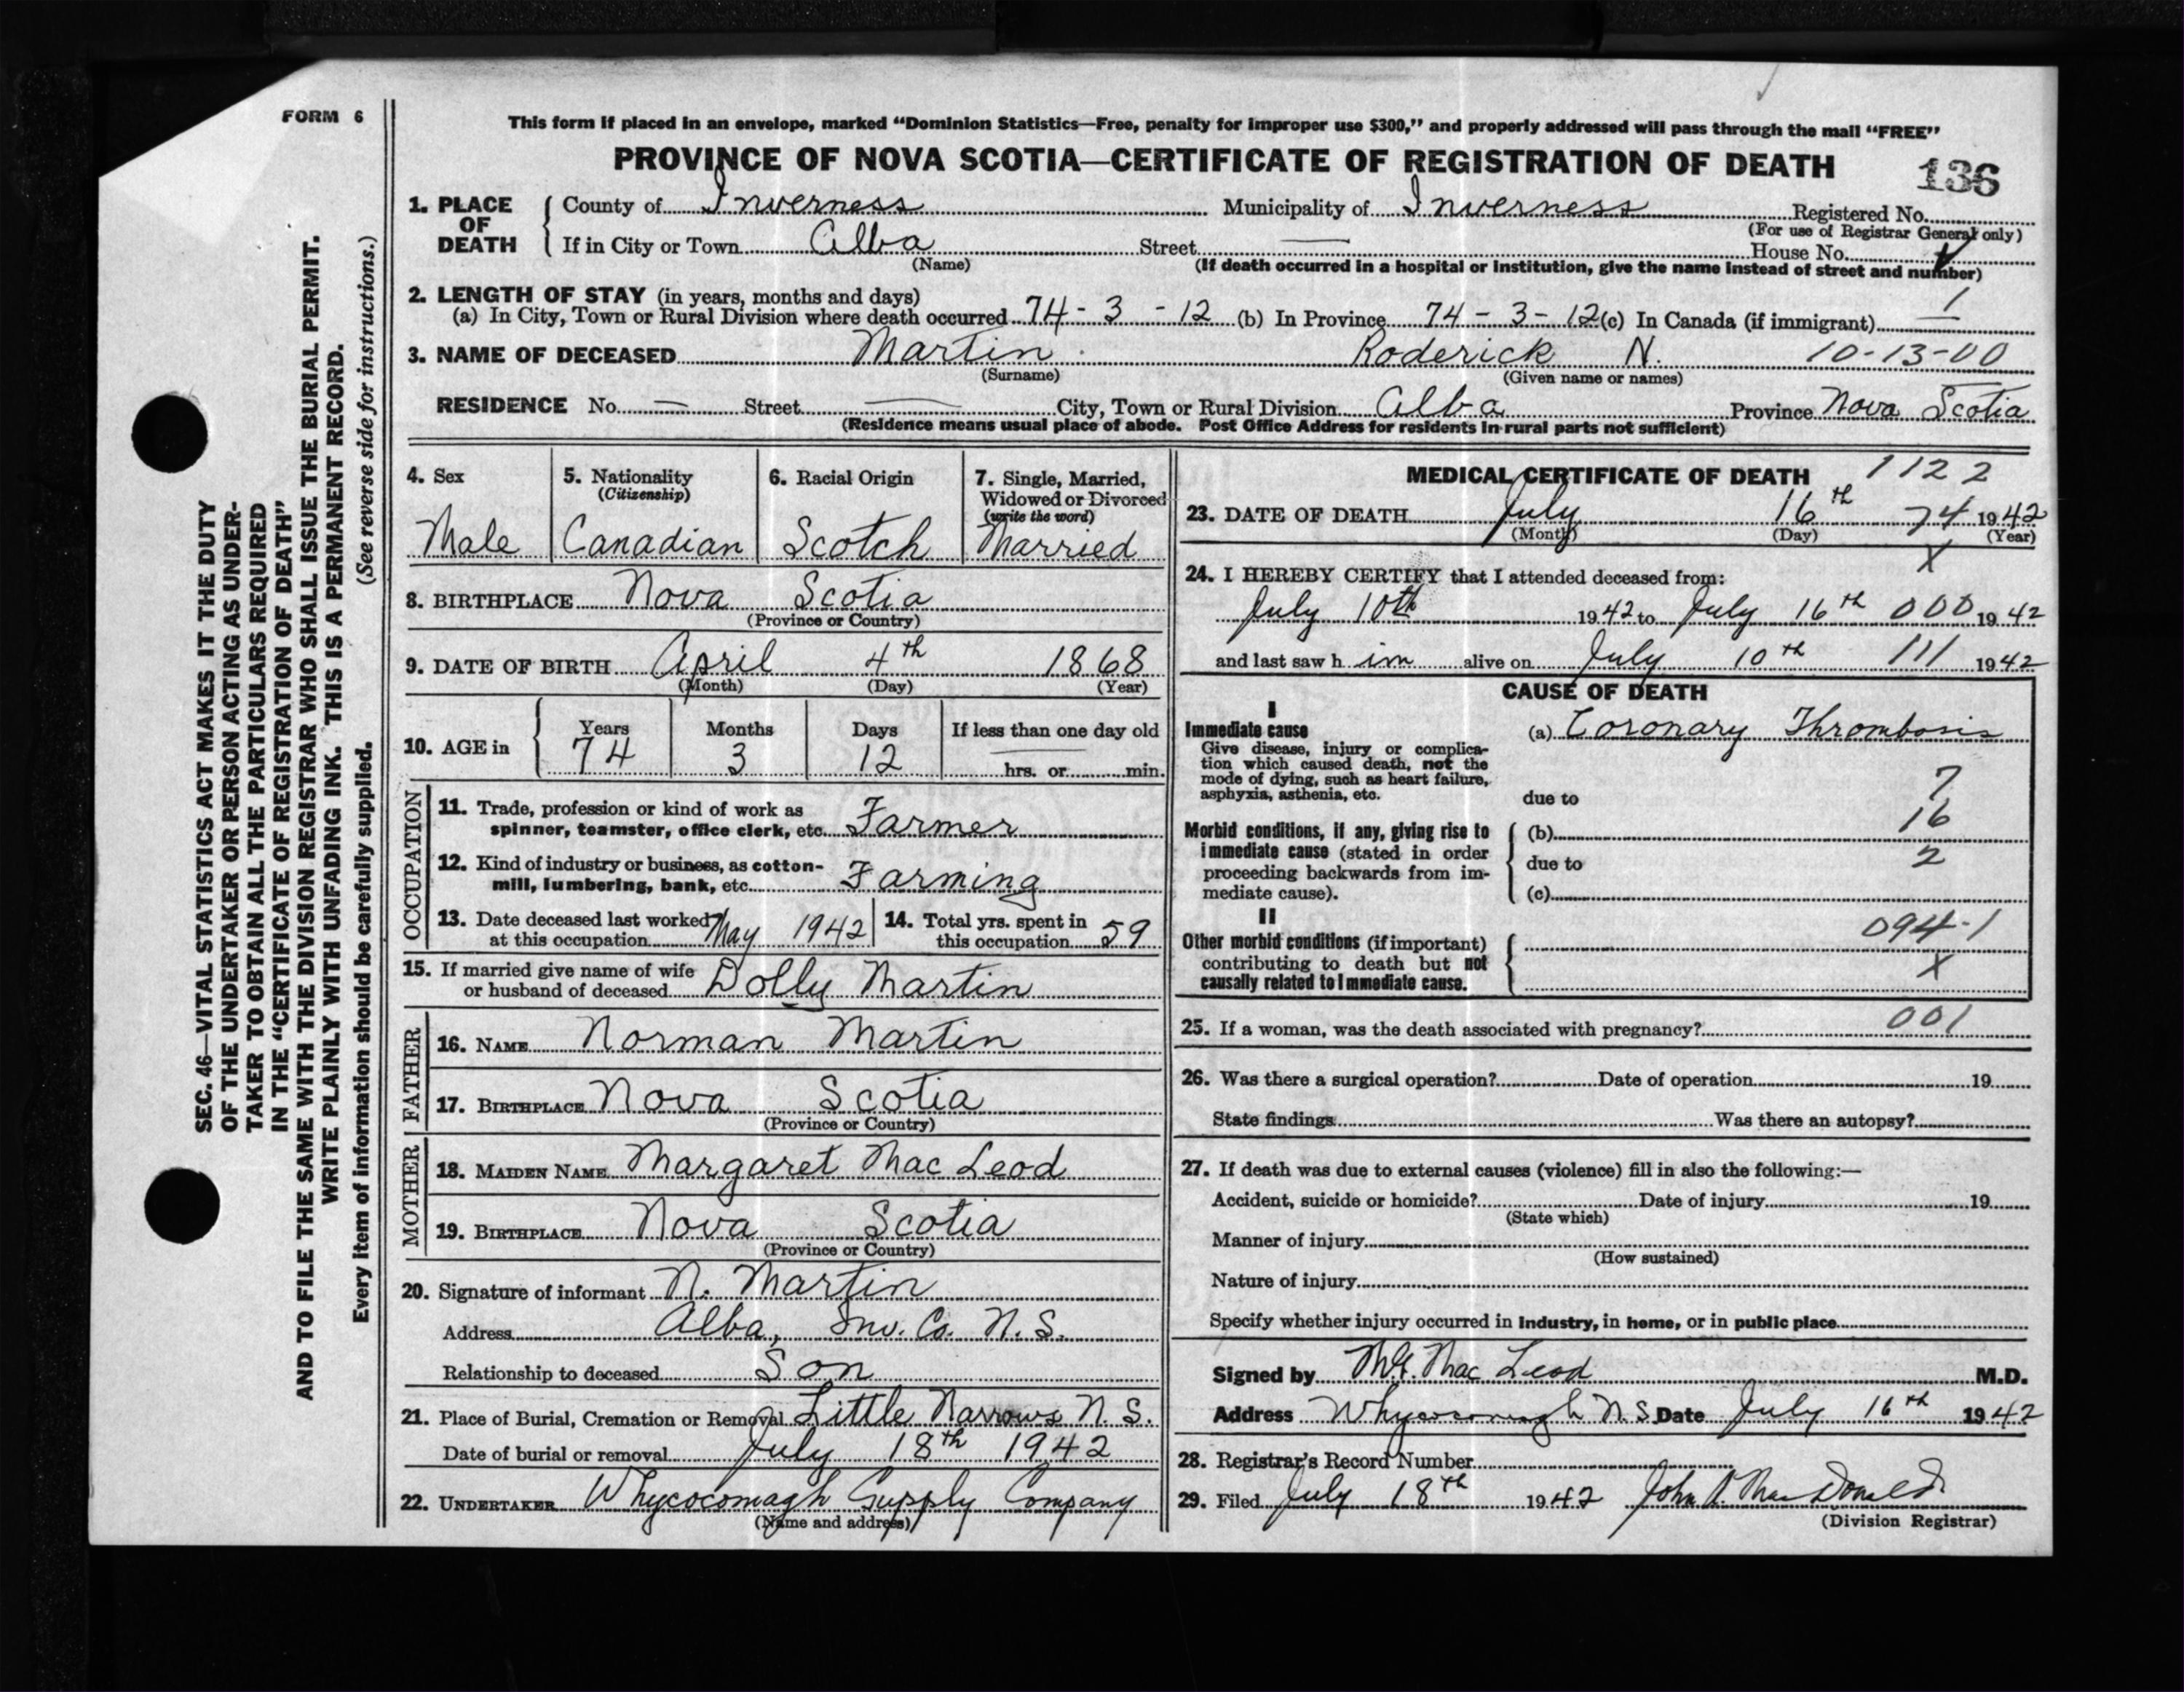 FORM 6
SEC. 46—VITAL STATISTICS ACT MAKES IT THE DUTY
OF THE UNDERTAKER OR PERSON ACTING AS UNDER-
TAKER TO OBTAIN ALL THE PARTICULARS REQUIRED
IN THE "CERTIFICATE OF REGISTRATION OF DEATH"
AND TO FILE THE SAME WITH THE DIVISION REGISTRAR WHO SHALL ISSUE THE BURIAL PERMIT.
WRITE PLAINLY WITH UNFADING INK. THIS IS A PERMANENT RECORD.
Every item of information should be carefully supplied. (See reverse side for instructions.)
This form if placed in an envelope, marked "Dominion Statistics—Free, penalty for improper use $300," and properly addressed will pass through the mail "FREE"
PROVINCE OF NOVA SCOTIA—CERTIFICATE OF REGISTRATION OF DEATH 136
1. PLACE OF DEATH County of Inverness Municipality of Inverness Registered No.
(For use of Registrar General only)
If in City or Town Alba Street — House No.
(Name) (If death occurred in a hospital or institution, give the name instead of street and number)
2. LENGTH OF STAY (in years, months and days) 1
(a) In City, Town or Rural Division where death occurred 74 - 3 - 12 (b) In Province 74 - 3 - 12 (c) In Canada (if immigrant) —
3. NAME OF DECEASED Martin Roderick N. 10-13-00
(Surname) (Given name or names)
RESIDENCE No. — Street — City, Town or Rural Division Alba Province Nova Scotia
(Residence means usual place of abode. Post Office Address for residents in rural parts not sufficient)
4. Sex Male
5. Nationality (Citizenship) Canadian
6. Racial Origin Scotch
7. Single, Married, Widowed or Divorced (write the word) Married
8. BIRTHPLACE Nova Scotia
(Province or Country)
9. DATE OF BIRTH April 4th 1868
(Month) (Day) (Year)
10. AGE in Years 74 Months 3 Days 12 If less than one day old — hrs. or min.
OCCUPATION
11. Trade, profession or kind of work as
spinner, teamster, office clerk, etc. Farmer
12. Kind of industry or business, as cotton-
mill, lumbering, bank, etc. Farming
13. Date deceased last worked
at this occupation May 1942
14. Total yrs. spent in
this occupation 59
15. If married give name of wife
or husband of deceased Dolly Martin
FATHER
16. NAME Norman Martin
17. BIRTHPLACE Nova Scotia
(Province or Country)
MOTHER
18. MAIDEN NAME Margaret Mac Leod
19. BIRTHPLACE Nova Scotia
(Province or Country)
20. Signature of informant N. Martin
Address Alba, Inv. Co. N. S.
Relationship to deceased Son
21. Place of Burial, Cremation or Removal Little Narrows N. S.
Date of burial or removal July 18th 1942
22. UNDERTAKER Whycocomagh Supply Company
(Name and address)
MEDICAL CERTIFICATE OF DEATH 1122
23. DATE OF DEATH July 16th 74 1942
(Month) (Day) (Year)
X
24. I HEREBY CERTIFY that I attended deceased from:
July 10th 1942 to July 16th 000 1942
and last saw h im alive on July 10th 111 1942
CAUSE OF DEATH
I
Immediate cause (a) Coronary Thrombosis
Give disease, injury or complica-
tion which caused death, not the
mode of dying, such as heart failure, 7
asphyxia, asthenia, etc. due to
16
Morbid conditions, if any, giving rise to (b)
immediate cause (stated in order due to 2
proceeding backwards from im-
mediate cause). (c)
II
Other morbid conditions (if important) 094-1
contributing to death but not X
causally related to immediate cause.
25. If a woman, was the death associated with pregnancy? 001
26. Was there a surgical operation? Date of operation 19
State findings Was there an autopsy?
27. If death was due to external causes (violence) fill in also the following:—
Accident, suicide or homicide? Date of injury 19
(State which)
Manner of injury
(How sustained)
Nature of injury
Specify whether injury occurred in industry, in home, or in public place
Signed by Mac Leod M.D.
Address Whycocomagh N. S. Date July 16th 1942
28. Registrar's Record Number
29. Filed July 18th 1942 John A. MacDonald
(Division Registrar)